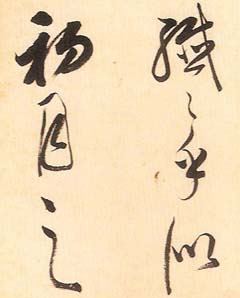 纖々乎似
初月之